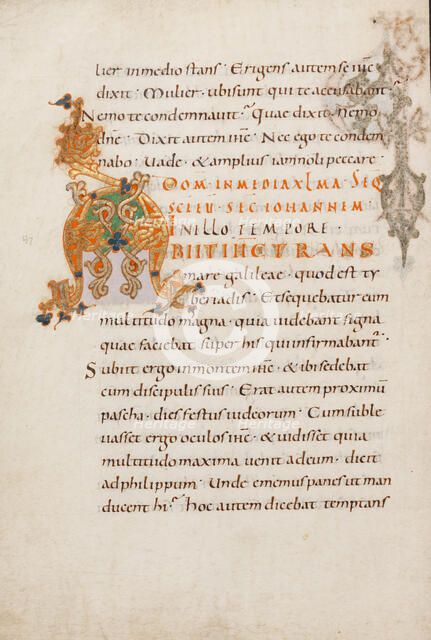 lier in medio stans · Erigens autem se ihc̄
dixit · Mulier · ubi sunt qui te accusabant ·
Nemo te condemnavit · Quae dixit · Nemo
dn̄e · Dixit autem ihc̄ · Nec ego te condem
nabo · Vade · & amplius iam noli peccare ·
DOM · IN MEDIA XLMA · SEQ
SCI EU · SEC · IOHANNEM
IN ILLO TEMPORE ·
ABIIT IHC TRANS
mare galileae · quod est ty
beriadis · Et sequebatur eum
multitudo magna · quia videbant signa
quae faciebat super his qui infirmabant᷑ ·
Subiit ergo in montem ihc̄ · & ibi sedebat
cum discipulis suis · Erat autem proximū
pascha · dies festus iudeorum · Cum suble
vasset ergo oculos ihc̄ · & vidisset quia
multitudo maxima venit ad eum · dicit
ad philippum · Unde ememus panes ut man
ducent hi · Hoc autem dicebat temptans
Heritage
Heritage
Heritage
Heritage